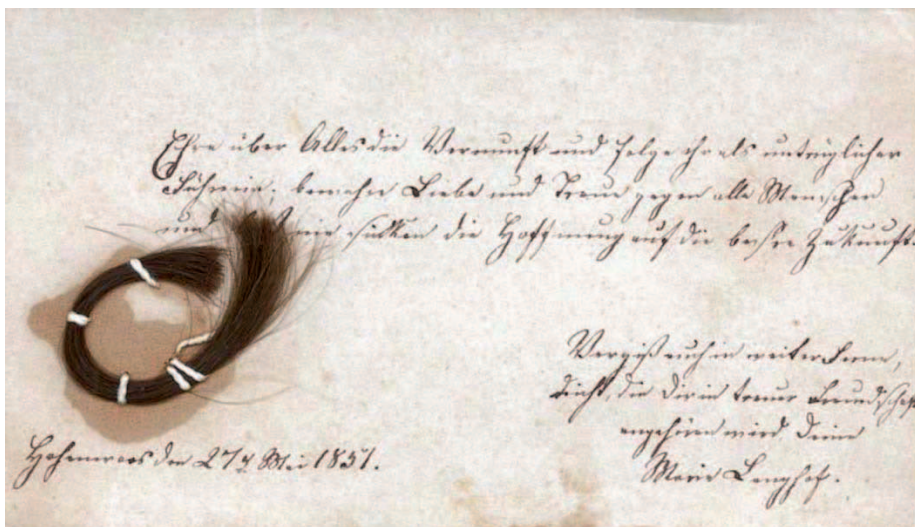 Ehre über Alles die Vernunft und folge ihr als untrüglicher
Führerin; bewahre Liebe und Treue gegen alle Menschen
und nie sinken die Hoffnung auf die bessre Zukunft
Vergiß auch in weiter Ferne,
Nicht, die Dir in treuer Freundschaft
angehören wird. Deine
Marie
den 27 Mai 1851.